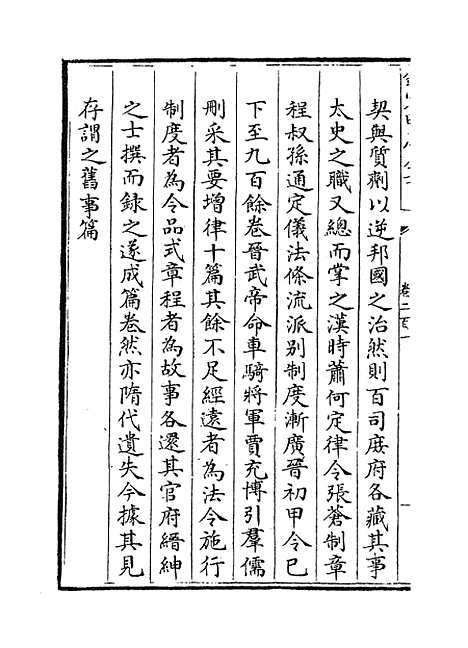 卷二百一
契與質劑以逆邦國之治然則百司庶府各藏其事
太史之職又總而掌之漢時蕭何定律令張蒼制章
程叔孫通定儀法條流派別制度漸廣晉初甲令已
下至九百餘卷晉武帝命車騎將軍賈充博引羣儒
刪采其要增律十篇其餘不足經遠者為法令施行
制度者為令品式章程者為故事各還其官府縉紳
之士撰而録之遂成篇卷然亦隋代遺失今據其見
存謂之舊事篇